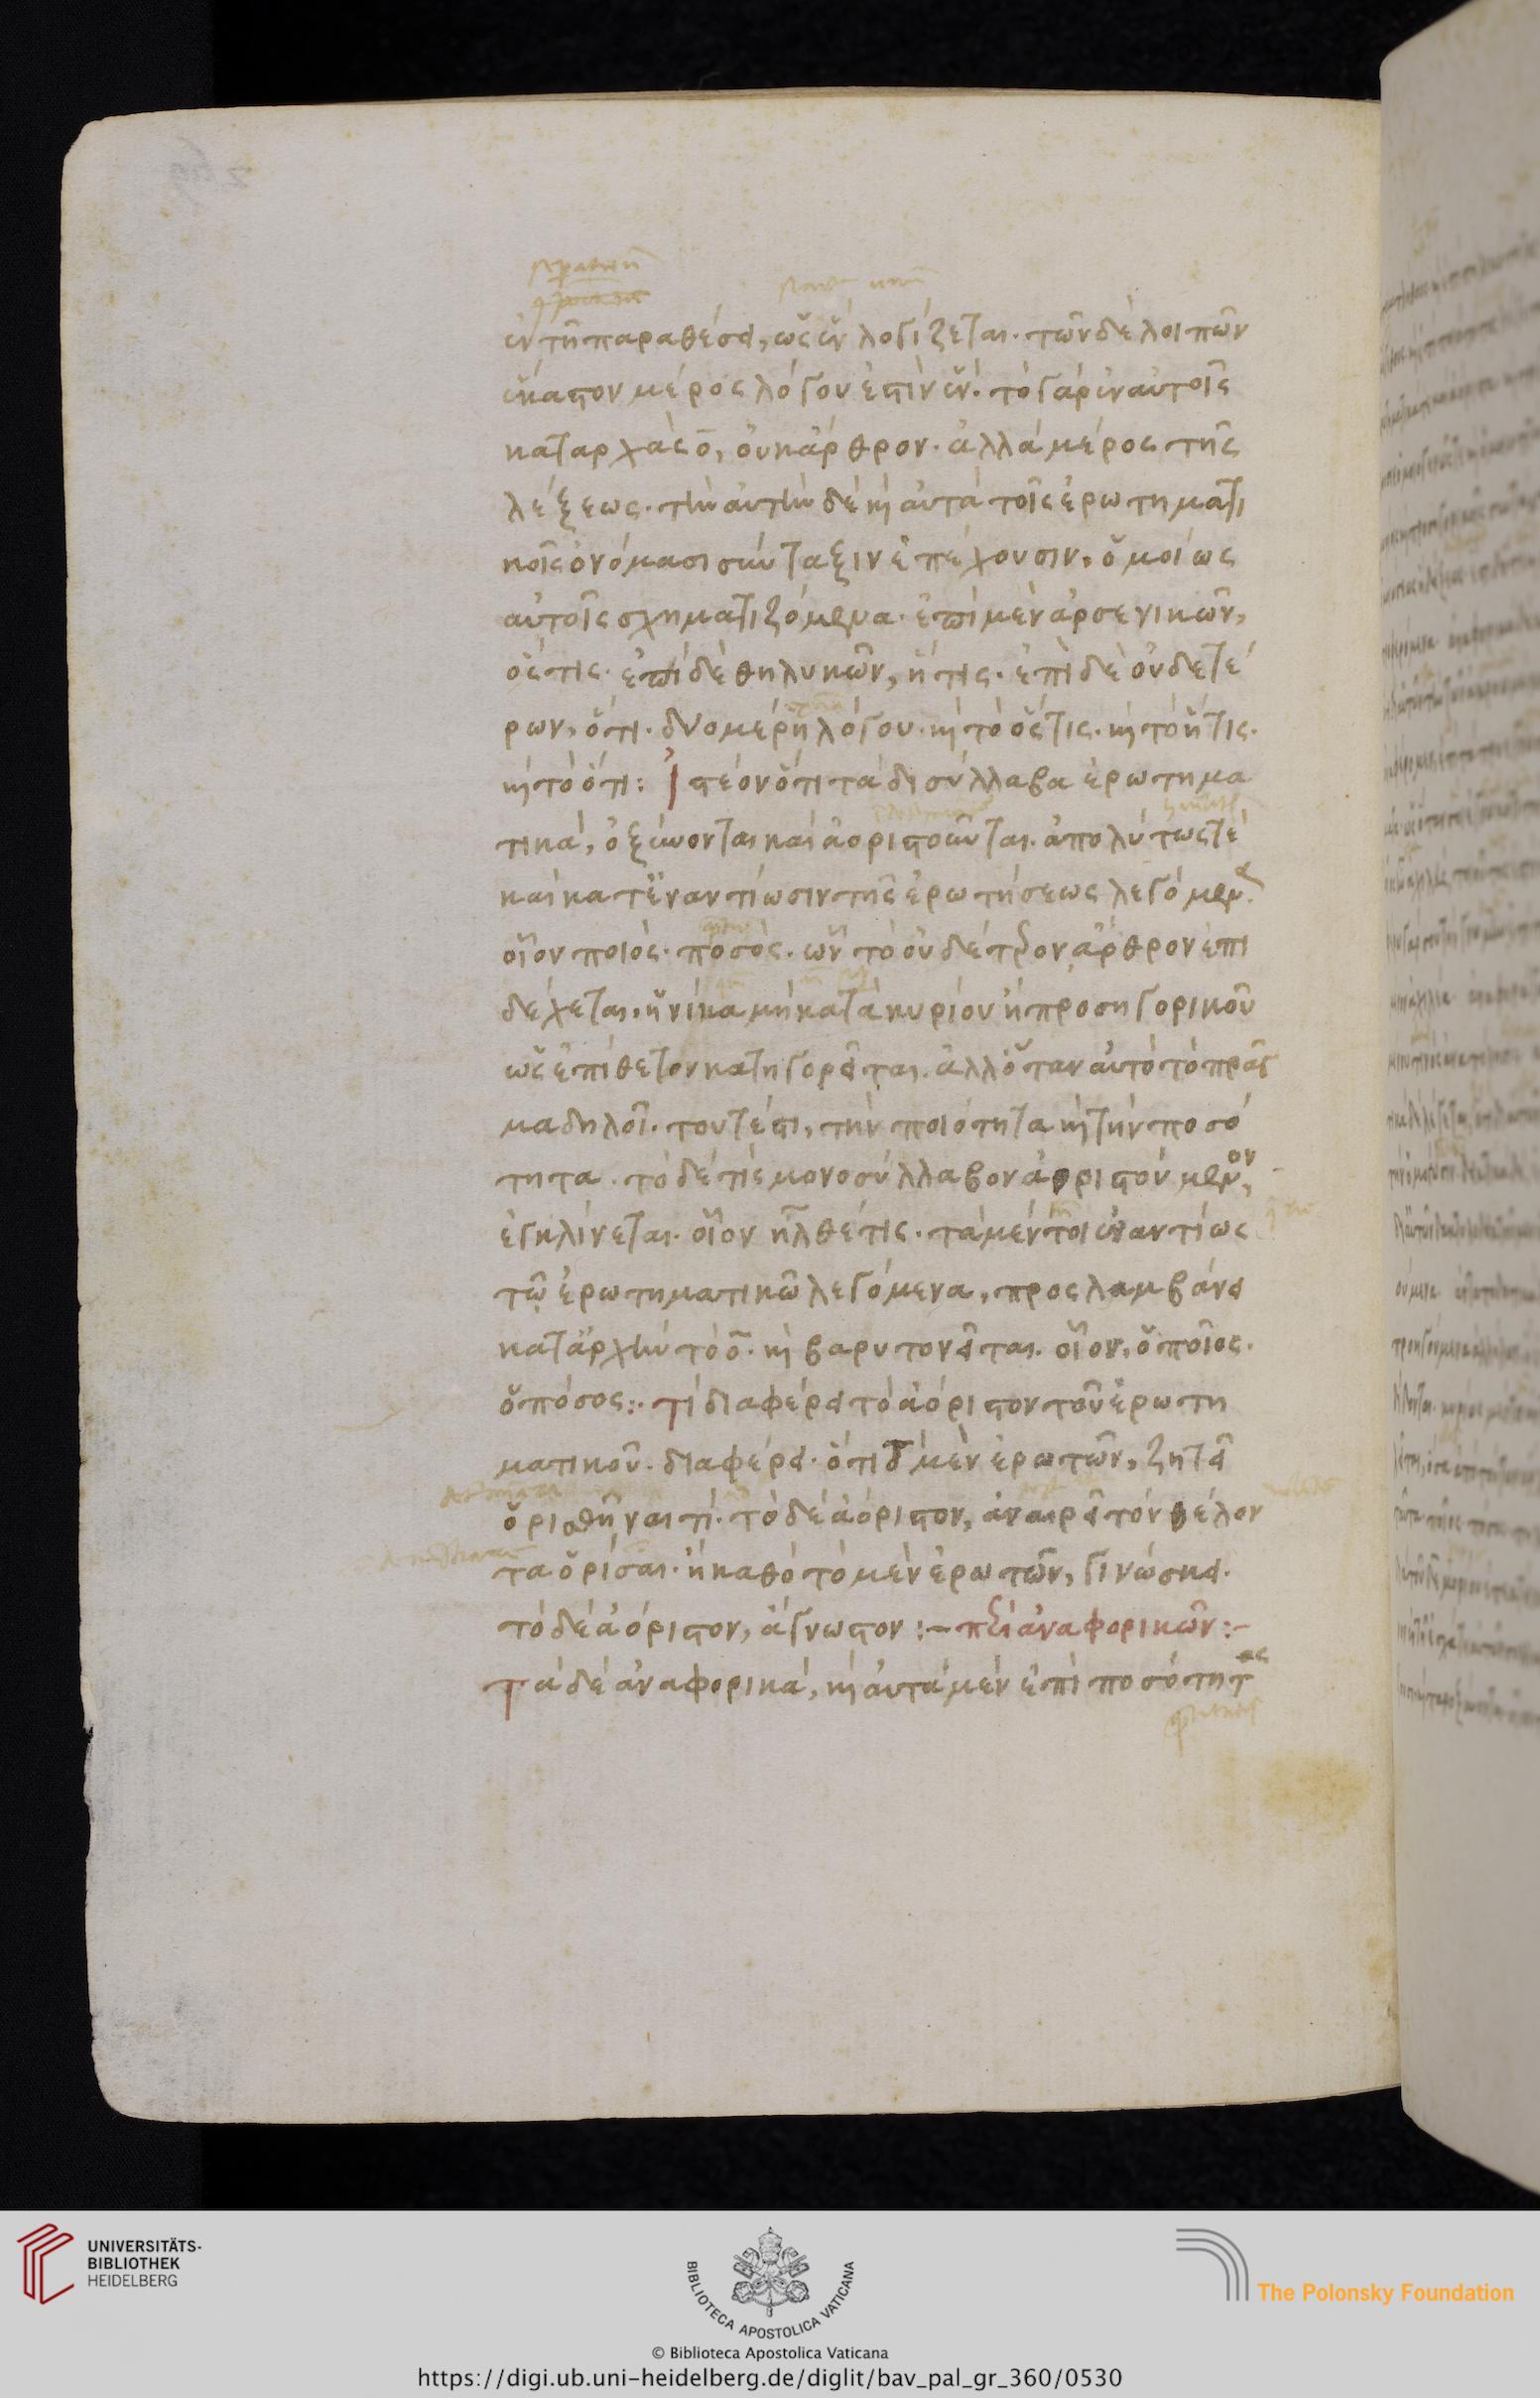 ἐν τῆ παραθέσει, ὡς ἓν λογίζεται. τῶν δὲ λοιπῶν
ἕκαστον μέρος λόγου ἐστὶν ἕν. τὸ γὰρ ἐν αὐτοῖς
καταρχὰς ο̄, οὐκ ἄρθρον. ἀλλὰ μέρος τῆς
λέξεως. τὴν αὐτὴν δὲ κὶ αὐτὰ τοῖς ἐρωτηματι
κοῖς ὀνόμασι σύνταξιν ἐπέχουσιν, ὁμοίως
αὐτοῖς σχηματιζόμενα. ἐπὶ μὲν ἀρσενικῶν,
ὅστις. ἐπὶ δὲ θηλυκῶν, ἥτις. ἐπὶ δὲ οὐδετέ
ρων, ὅτι. δύο μέρη λόγου. κὶ τὸ ὅστις. κὶ τὸ ἥτις.
κὶ τὸ ὅτι: Ἰστέον ὅτι τὰ δισύλλαβα ἐρωτημα
τικὰ, ὀξύνονται καὶ ἀοριστοῦνται. ἀπολύτως τὲ
καὶ κατ' ἐναντίωσιν τῆς ἐρωτήσεως λεγόμενα.
οἷον ποιός. ποσός. ὧν τὸ οὐδέτερον ἄρθρον ἐπι
δέχεται. ἡνίκα μὴ κατὰ κυρίου ἢ προσηγορικοῦ
ὡς ἐπίθετον κατηγορεῖται. ἀλλ' ὅταν αὐτὸ τὸ πρᾶγ
μα δηλοῖ. τουτέστι, τὴν ποιότητα κὶ τὴν ποσό
τητα. τὸ δέ τὶς μονοσύλλαβον ἀόριστον μὲν ὂν,
ἐγκλίνεται. οἷον ἦλθέ τις. τὰ μέν τοι ἐναντίως
τῷ ἐρωτηματικῶ λεγόμενα, προσλαμβάνει
κατ' ἀρχὴν τὸ ο̄. κὶ βαρυτονεῖται. οἷον, ὁποῖος.
ὁπόσος:. Τί διαφέρει τὸ ἀόριστον τοῦ ἐρωτη
ματικοῦ. διαφέρει. ὅτι ὁ μὲν ἐρωτῶν, ζητεῖ
ὁρισθῆναι τί. τὸ δὲ ἀόριστον, ἀναιρεῖ τὸν θέλον
τα ὁρίσαι. ἢ καθὸ τὸ μὲν ἐρωτῶν, γινώσκει.
τὸ δὲ ἀόριστον, ἄγνωστον :– περὶ ἀναφορικῶν :–
Τὰ δὲ ἀναφορικὰ, κὶ αὐτὰ μὲν ἐπὶ ποσότητος
UNIVERSITÄTS-
BIBLIOTHEK
HEIDELBERG
BIBLIOTECA APOSTOLICA VATICANA
The Polonsky Foundation
© Biblioteca Apostolica Vaticana
https://digi.ub.uni-heidelberg.de/diglit/bav_pal_gr_360/0530